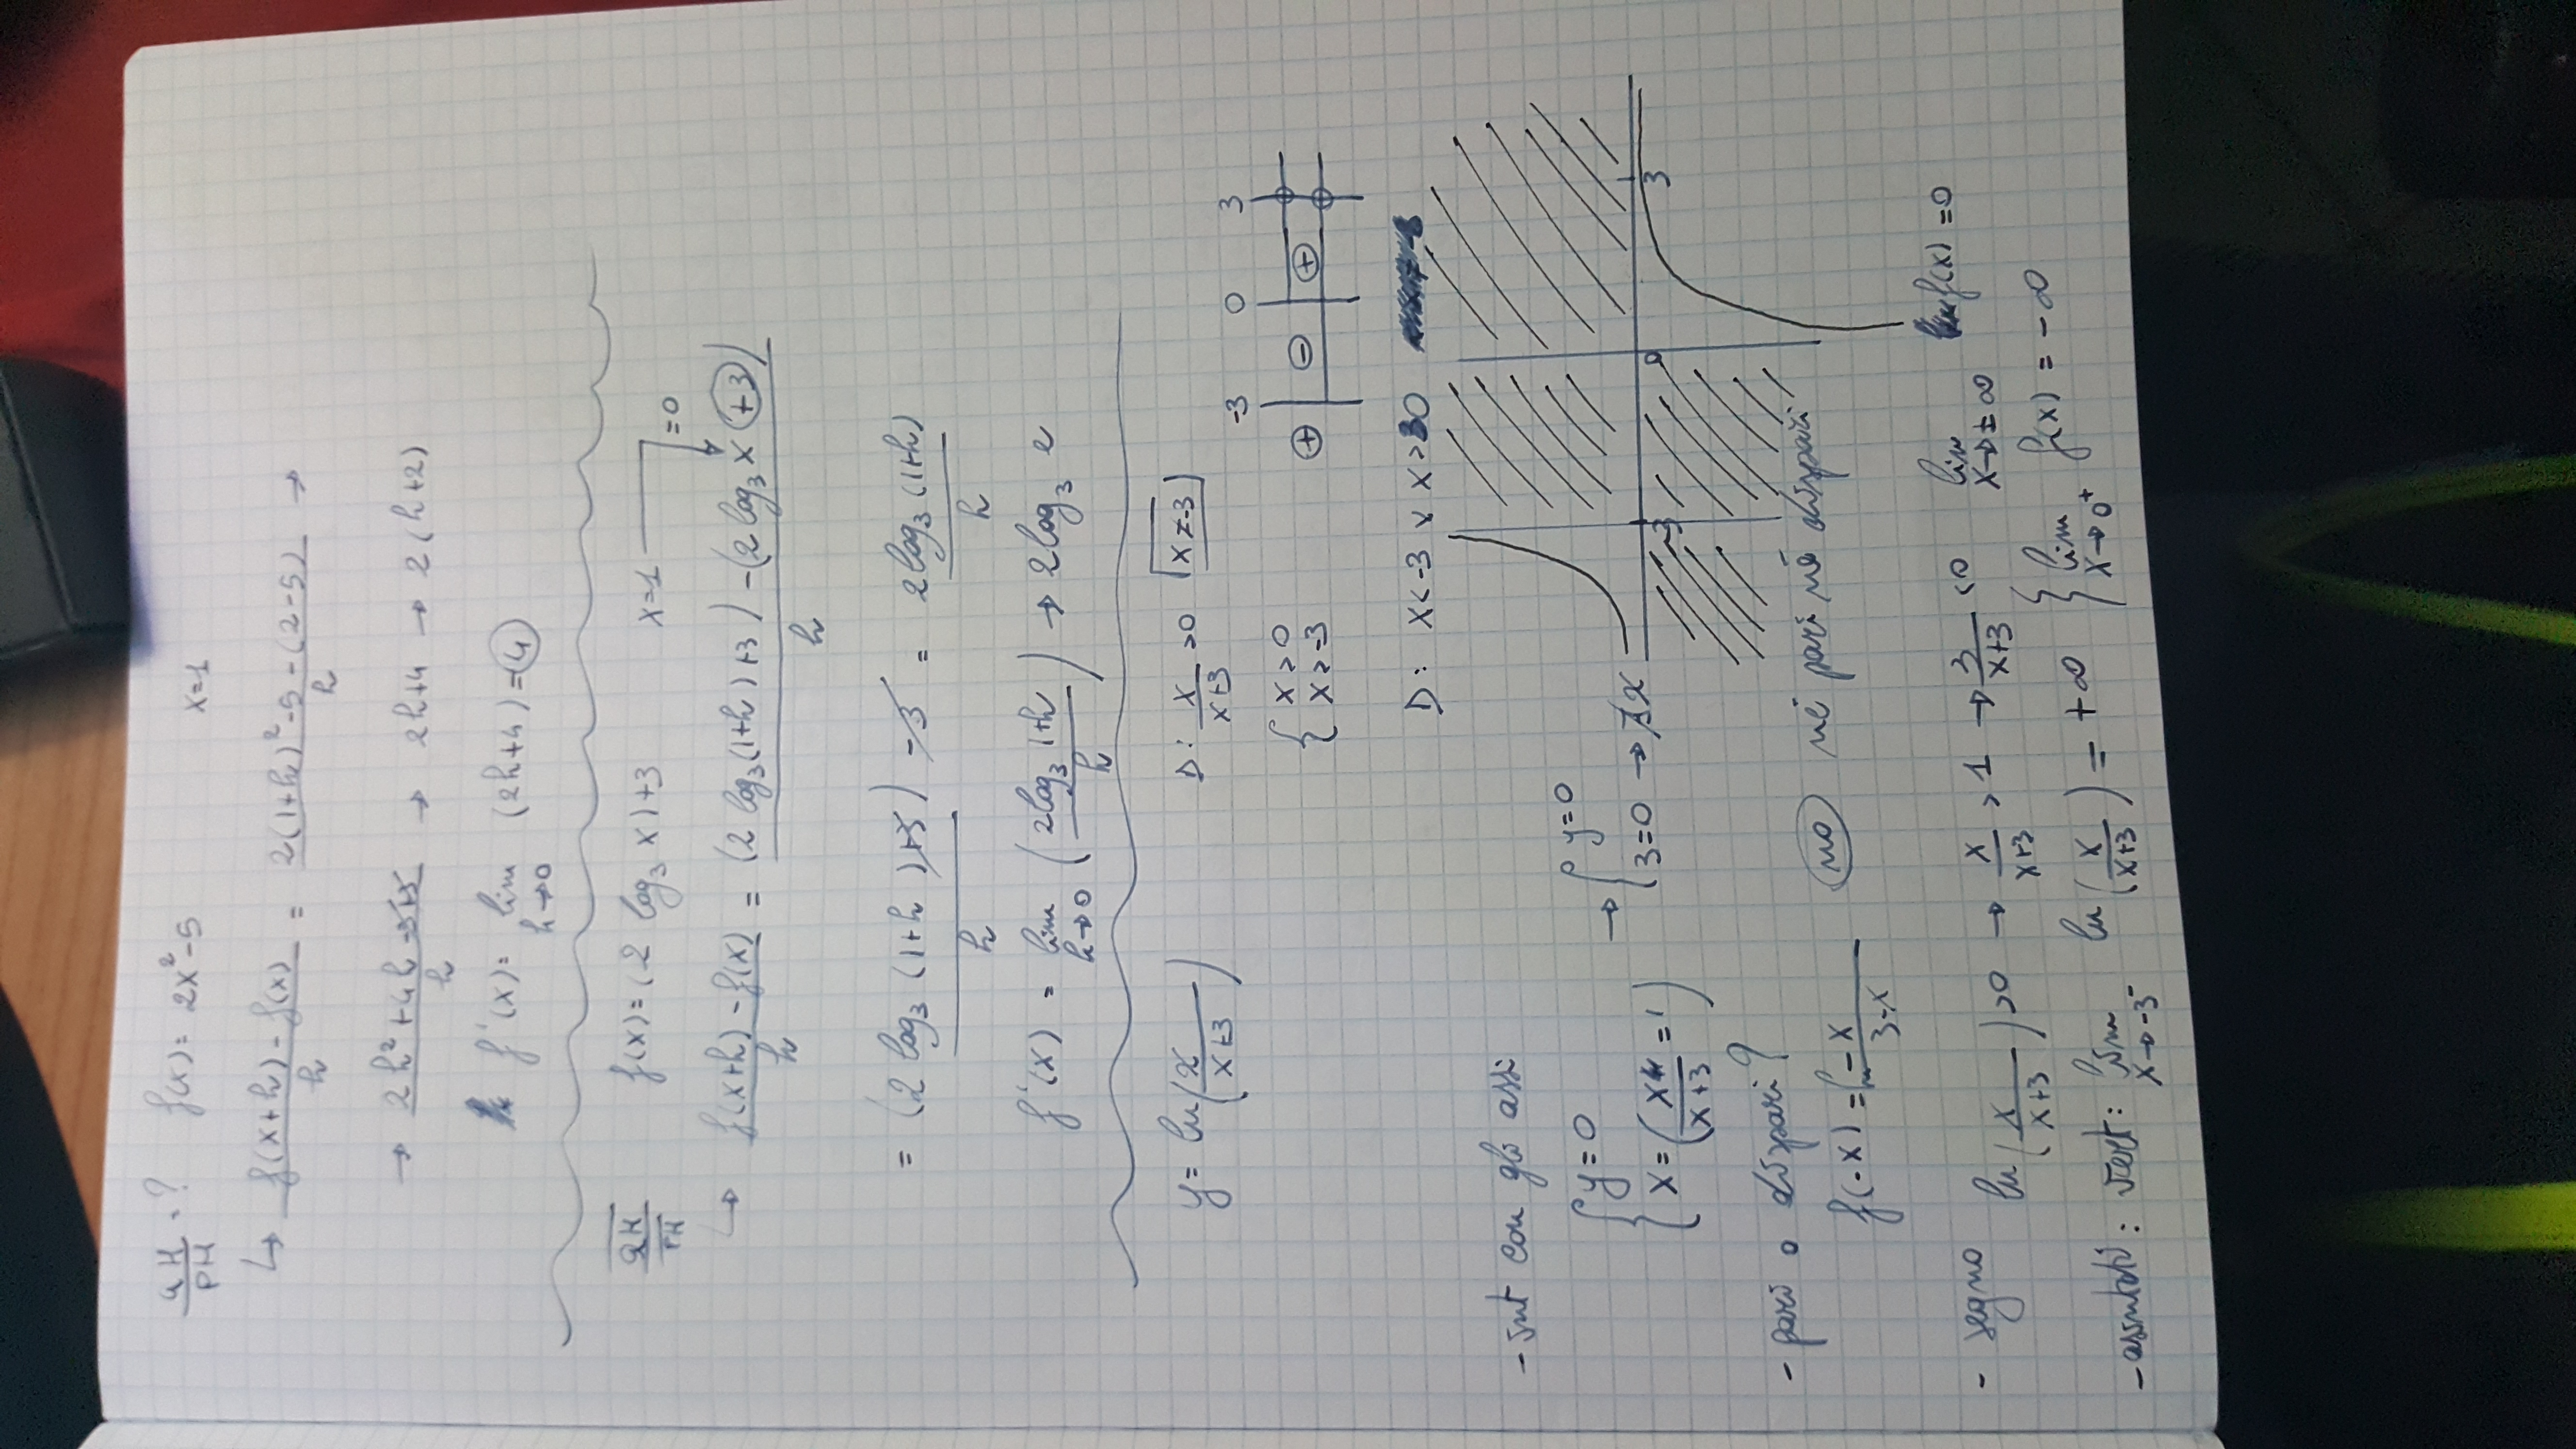 QH/PH = ? f(x) = 2x² - 5 x=1
↳ (f(x+h) - f(x))/h = (2(1+h)² - 5 - (2-5))/h →
→ (2h² + 4h - 5 + 5)/h → 2h+4 → 2(h+2)
f'(x) = lim h→0 (2h+4) = 4
QH/PH f(x) = (2 log₃ x) + 3 x=1 =0
↳ (f(x+h) - f(x))/h = ((2 log₃(1+h)+3) - (2 log₃ x +3))/h
= ((2 log₃(1+h)) + 3) - 3)/h = 2 log₃(1+h)/h
f'(x) = lim h→0 (2 log₃ 1+h / h) → 2 log₃ e
y = ln(x/(x+3)) D: x/(x+3) > 0 x ≠ -3
{ x > 0
{ x > -3
-3 0 3
+ - +
D: x < -3 ∨ x > 0
- int con gli assi
{ y=0
{ x = (x/(x+3) = 1) → { y=0
{ 3=0 → ∄x
-3 0 3
- pari o dispari?
f(-x) = ln -x/(3-x) no né pari né dispari
- segno ln(x/(x+3)) > 0 → x/(x+3) > 1 → 3/(x+3) < 0 lim x→±∞ f(x) = 0
- asintoti: vert: lim x→-3⁻ ln(x/(x+3)) = +∞ { lim x→0⁺ f(x) = -∞